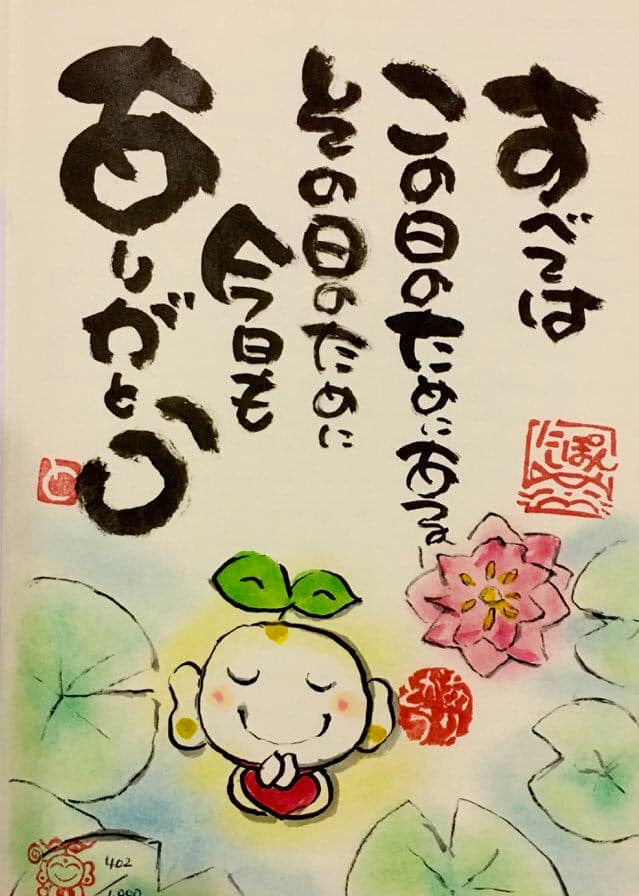 すべては
この日のためにある
その日のために
今日も
ありがとう
402